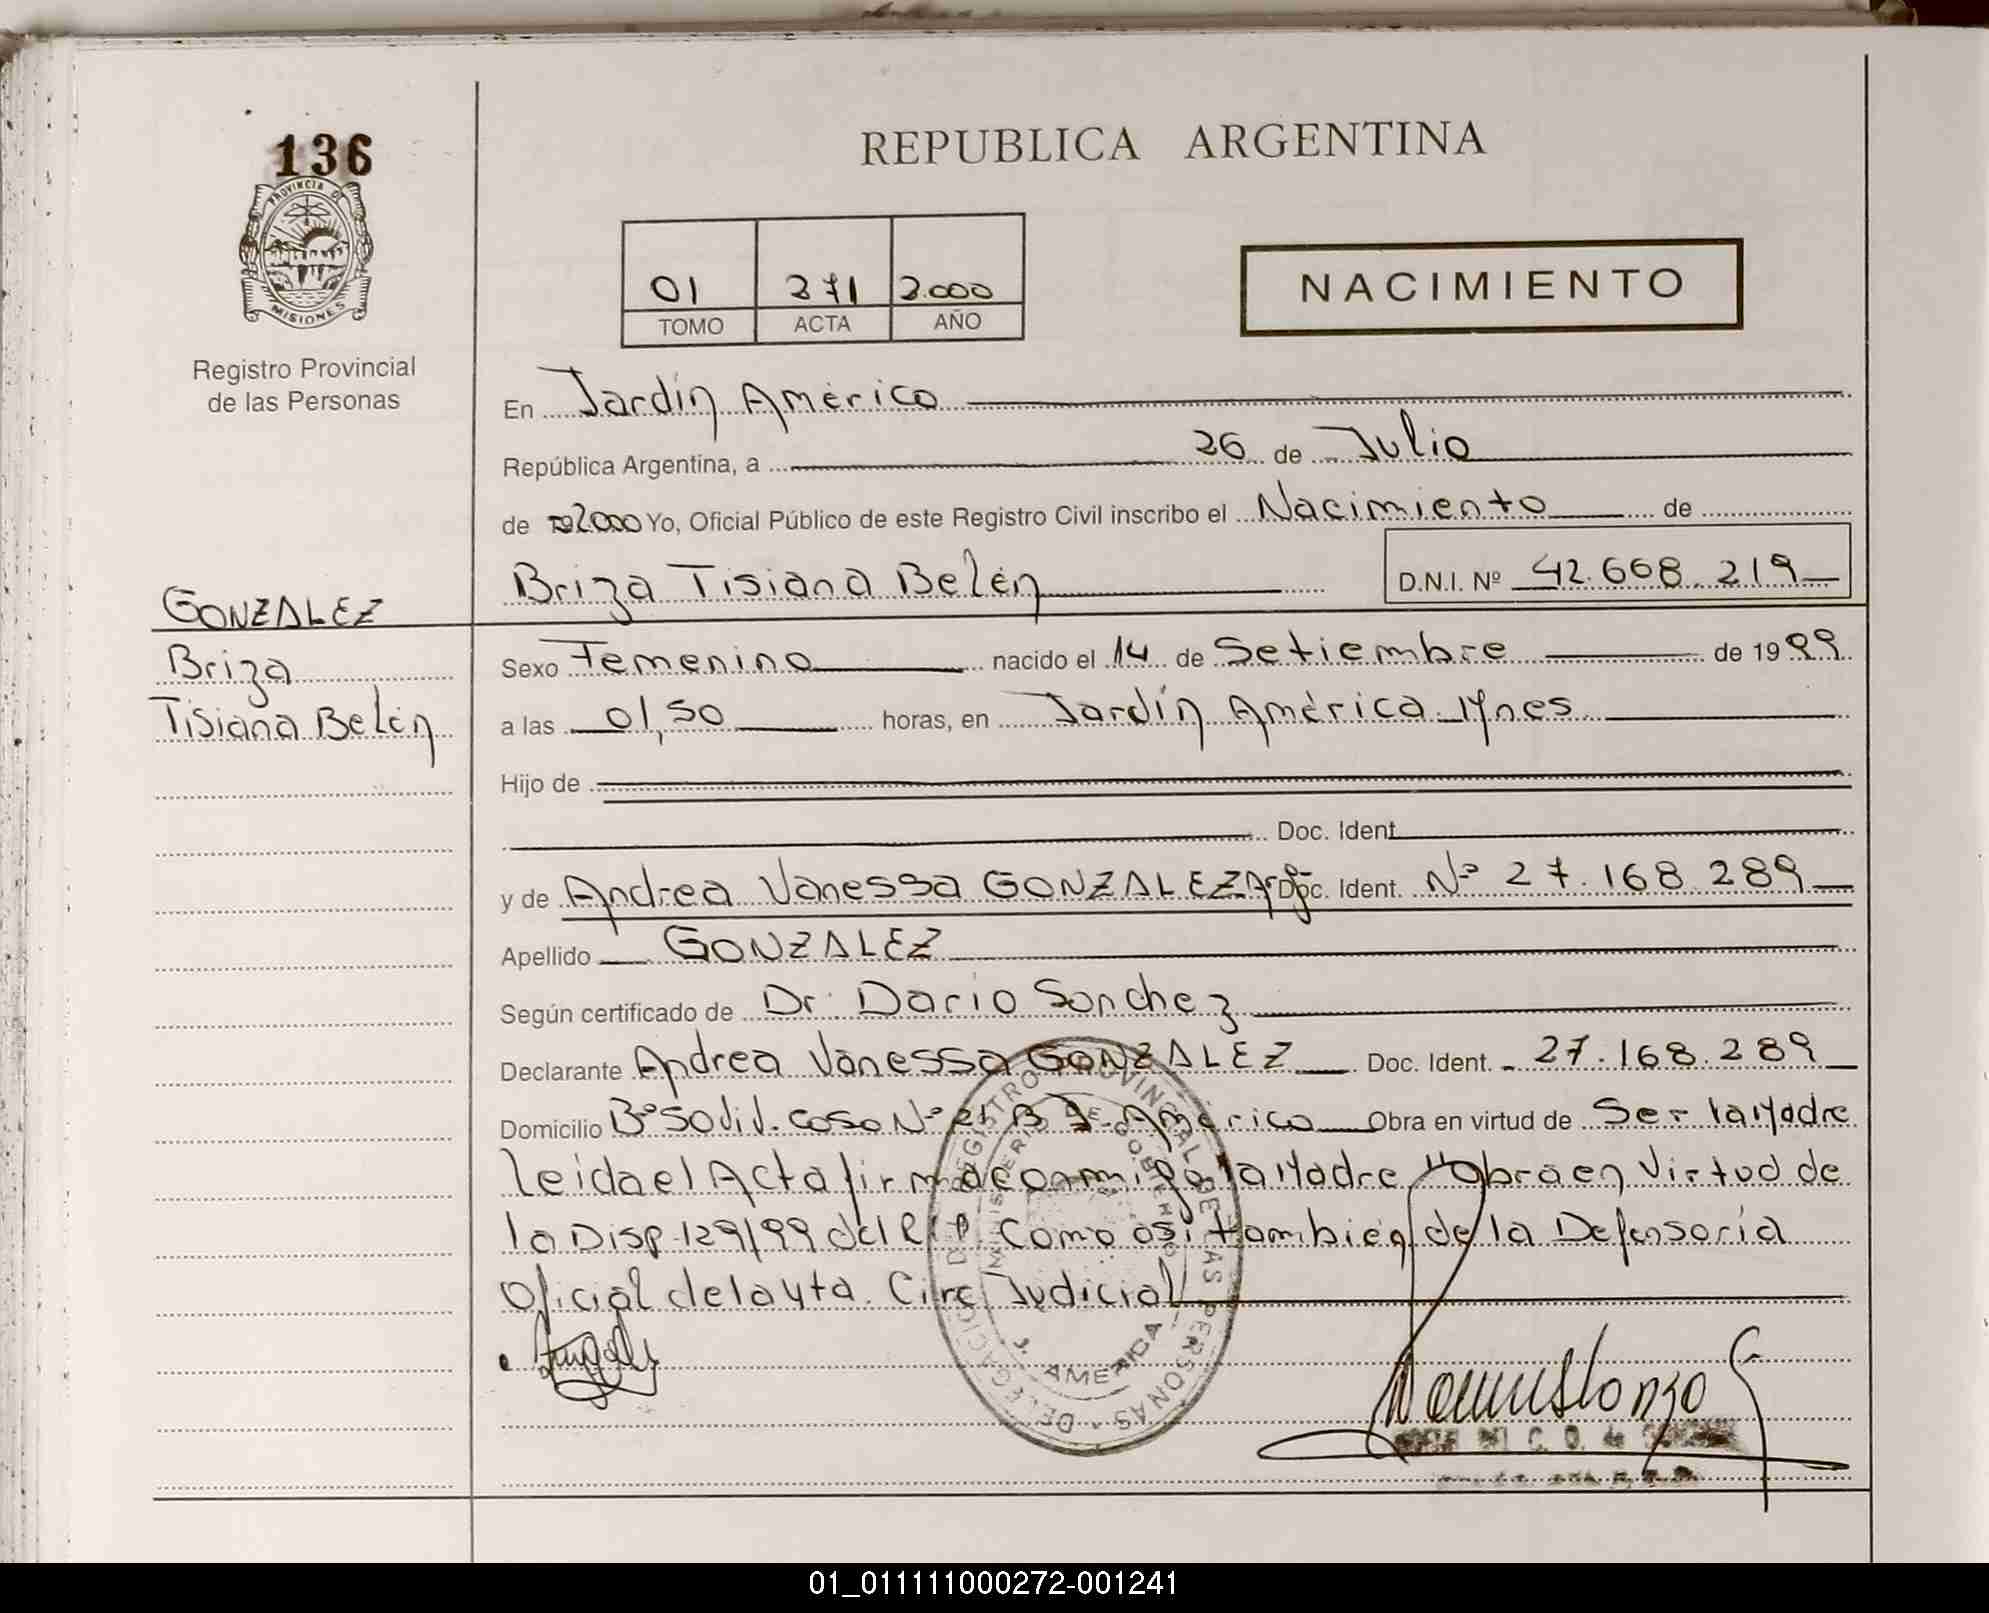 136
PROVINCIA DE
MISIONES
Registro Provincial
de las Personas
REPUBLICA ARGENTINA
01 271 2.000
TOMO ACTA AÑO
NACIMIENTO
En Jardín América
República Argentina, a 26 de Julio
de 2000 Yo, Oficial Público de este Registro Civil inscribo el Nacimiento de
Briza Tisiana Belén D.N.I. Nº 42.668.219
GONZALEZ
Briza
Tisiana Belén
Sexo Femenino nacido el 14 de Setiembre de 1999
a las 01,50 horas, en Jardín América Mnes
Hijo de
Doc. Ident.
y de Andrea Vanessa GONZALEZ Arg Doc. Ident. Nº 27.168.289
Apellido GONZALEZ
Según certificado de Dr. Dario Sanchez
Declarante Andrea Vanessa GONZALEZ Doc. Ident. 27.168.289
Domicilio Bº 50 viv. casa Nº J. América Obra en virtud de Ser la Madre
Leida el Acta firma conmigo la Madre "Obra en Virtud de
la Disp. 129/99 del R.P. Como asi tambien de la Defensoria
Oficial de la 4ta. Circ. Judicial
DELEGACION DE REGISTRO PROVINCIAL DE LAS PERSONAS
MINISTERIO DE GOBIERNO
J. AMERICA
01_011111000272-001241